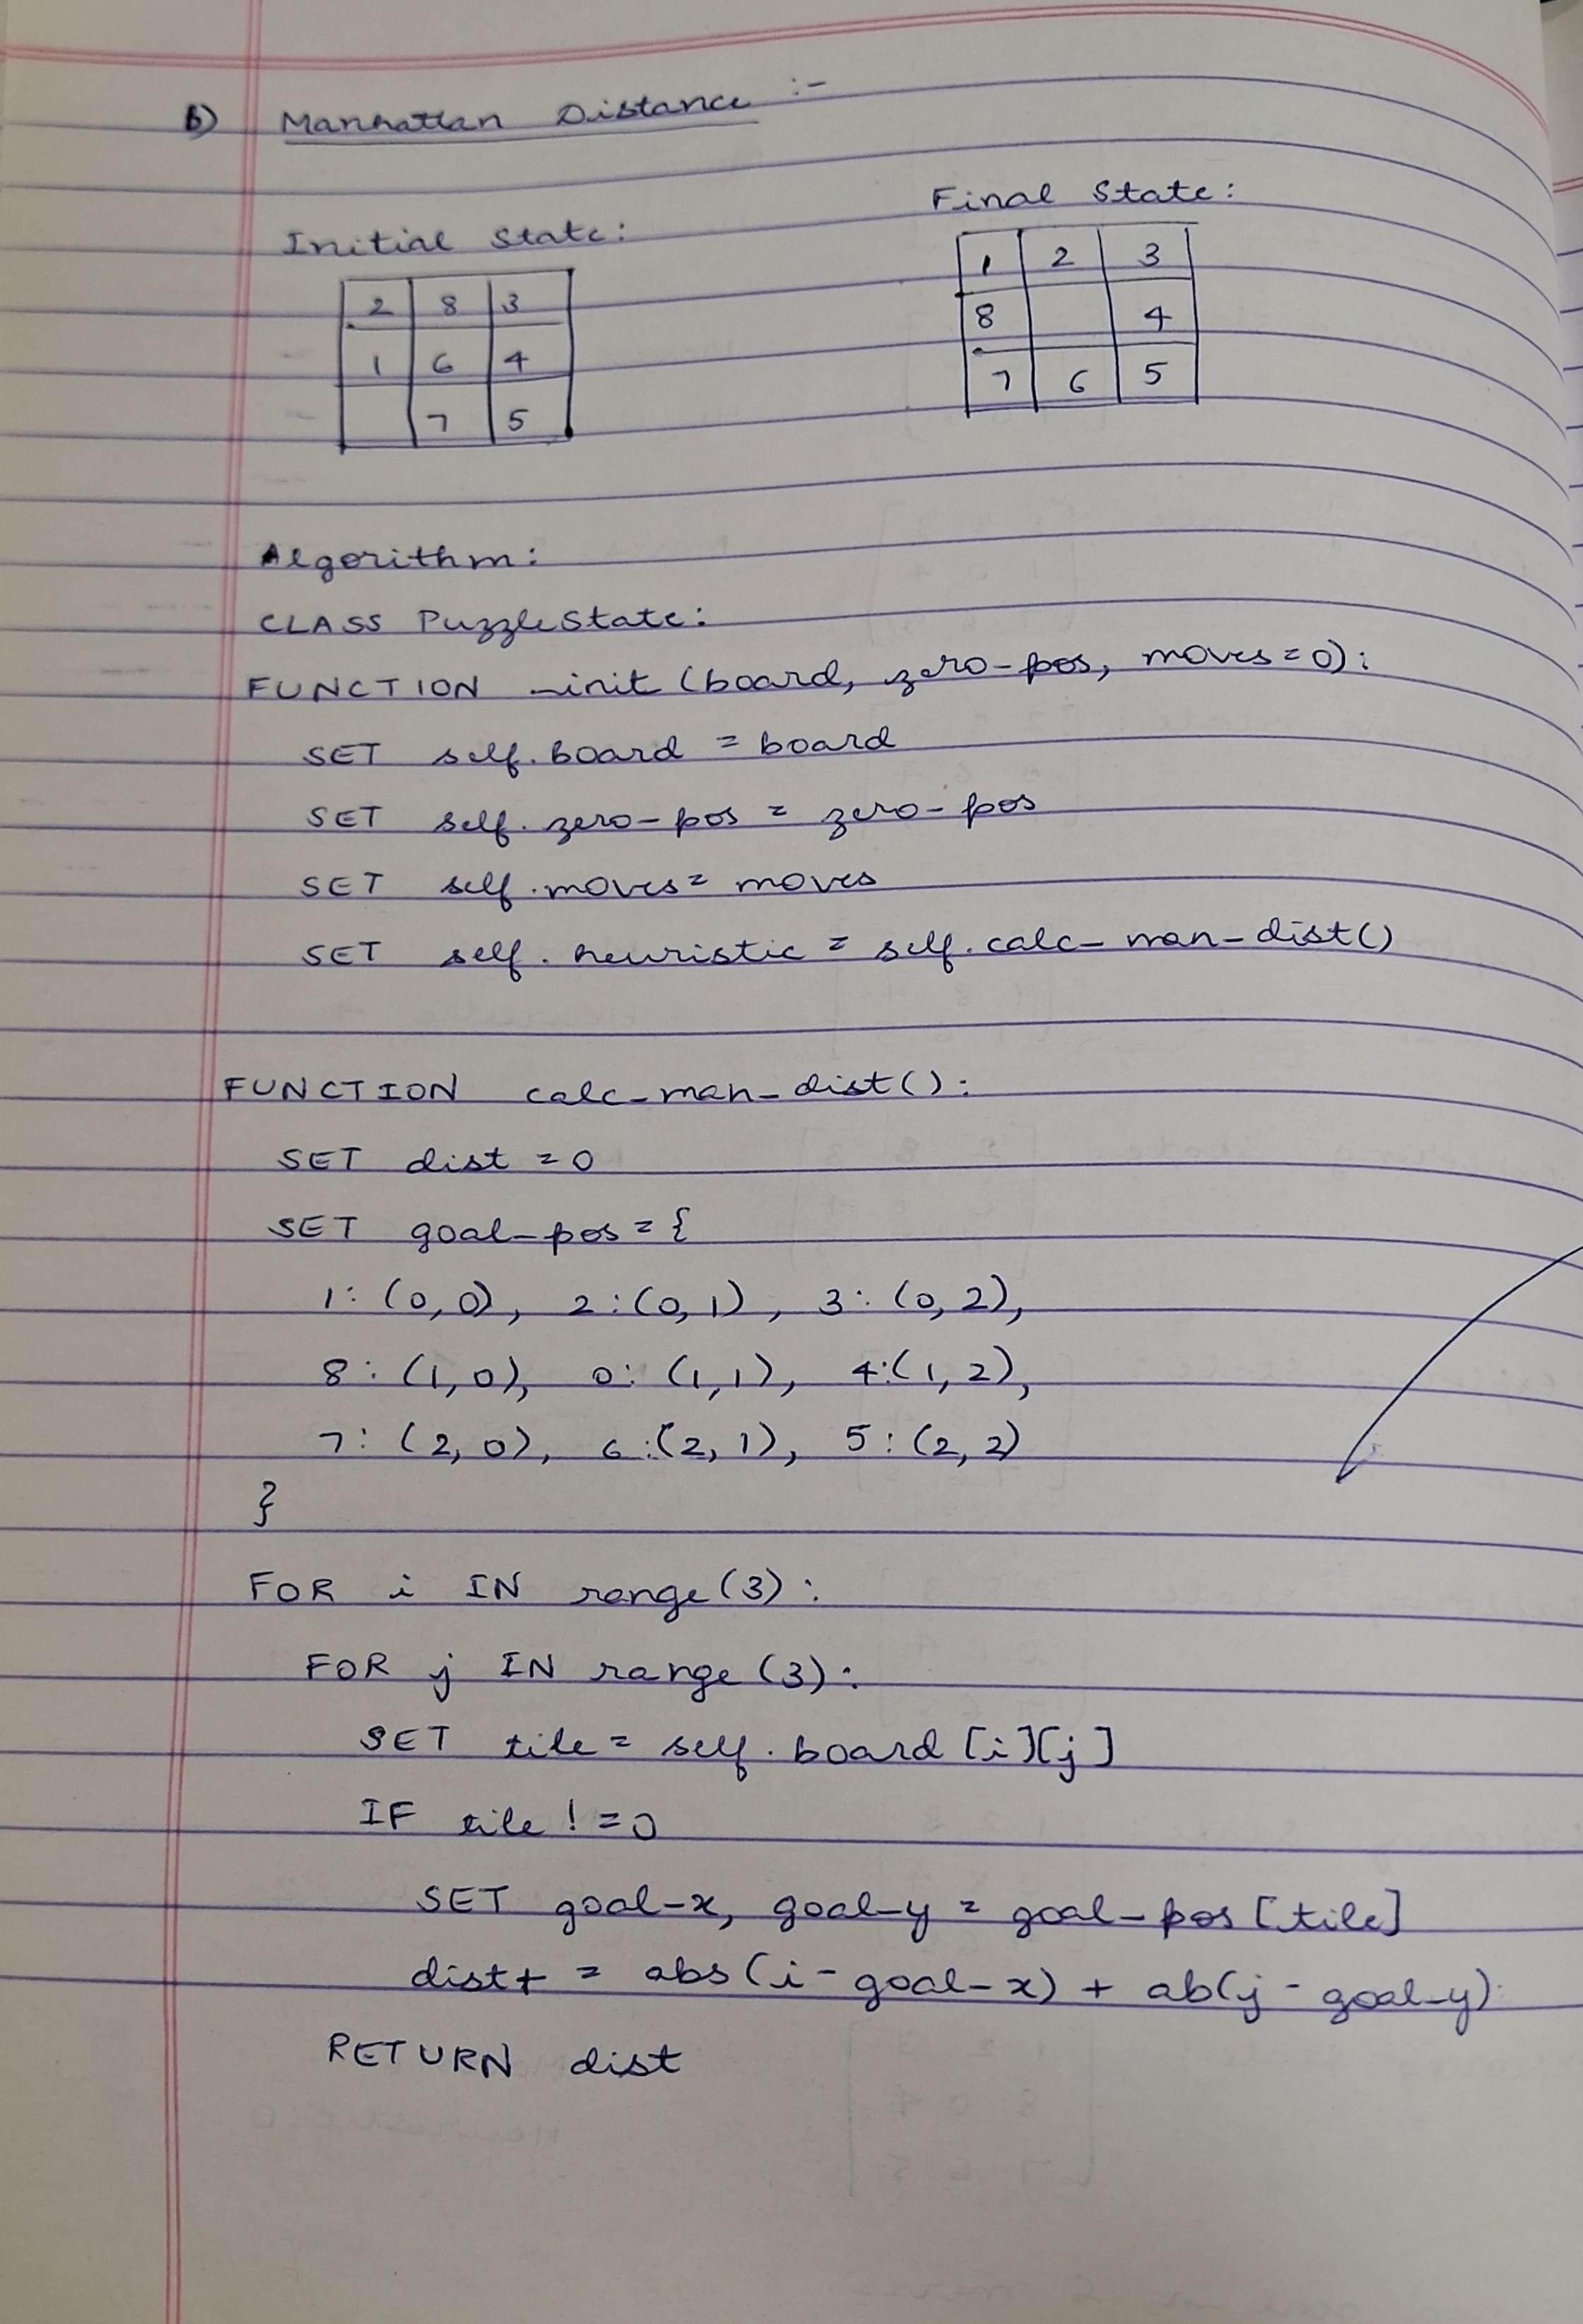 b) Manhattan Distance :-
Final State:
Initial State:
1 2 3
8 4
7 6 5
2 8 3
1 6 4
7 5
Algorithm:
CLASS PuzzleState:
FUNCTION _init (board, zero-pos, moves=0):
SET self.board = board
SET self.zero-pos = zero-pos
SET self.moves = moves
SET self.heuristic = self.calc-man-dist()
FUNCTION calc-man-dist():
SET dist = 0
SET goal-pos = {
1: (0,0), 2:(0,1), 3: (0,2),
8: (1,0), 0: (1,1), 4:(1,2),
7: (2,0), 6:(2,1), 5:(2,2)
}
FOR i IN range(3):
FOR j IN range(3):
SET tile = self.board[i][j]
IF tile != 0
SET goal-x, goal-y = goal-pos[tile]
dist+ = abs(i-goal-x) + ab(j-goal-y)
RETURN dist